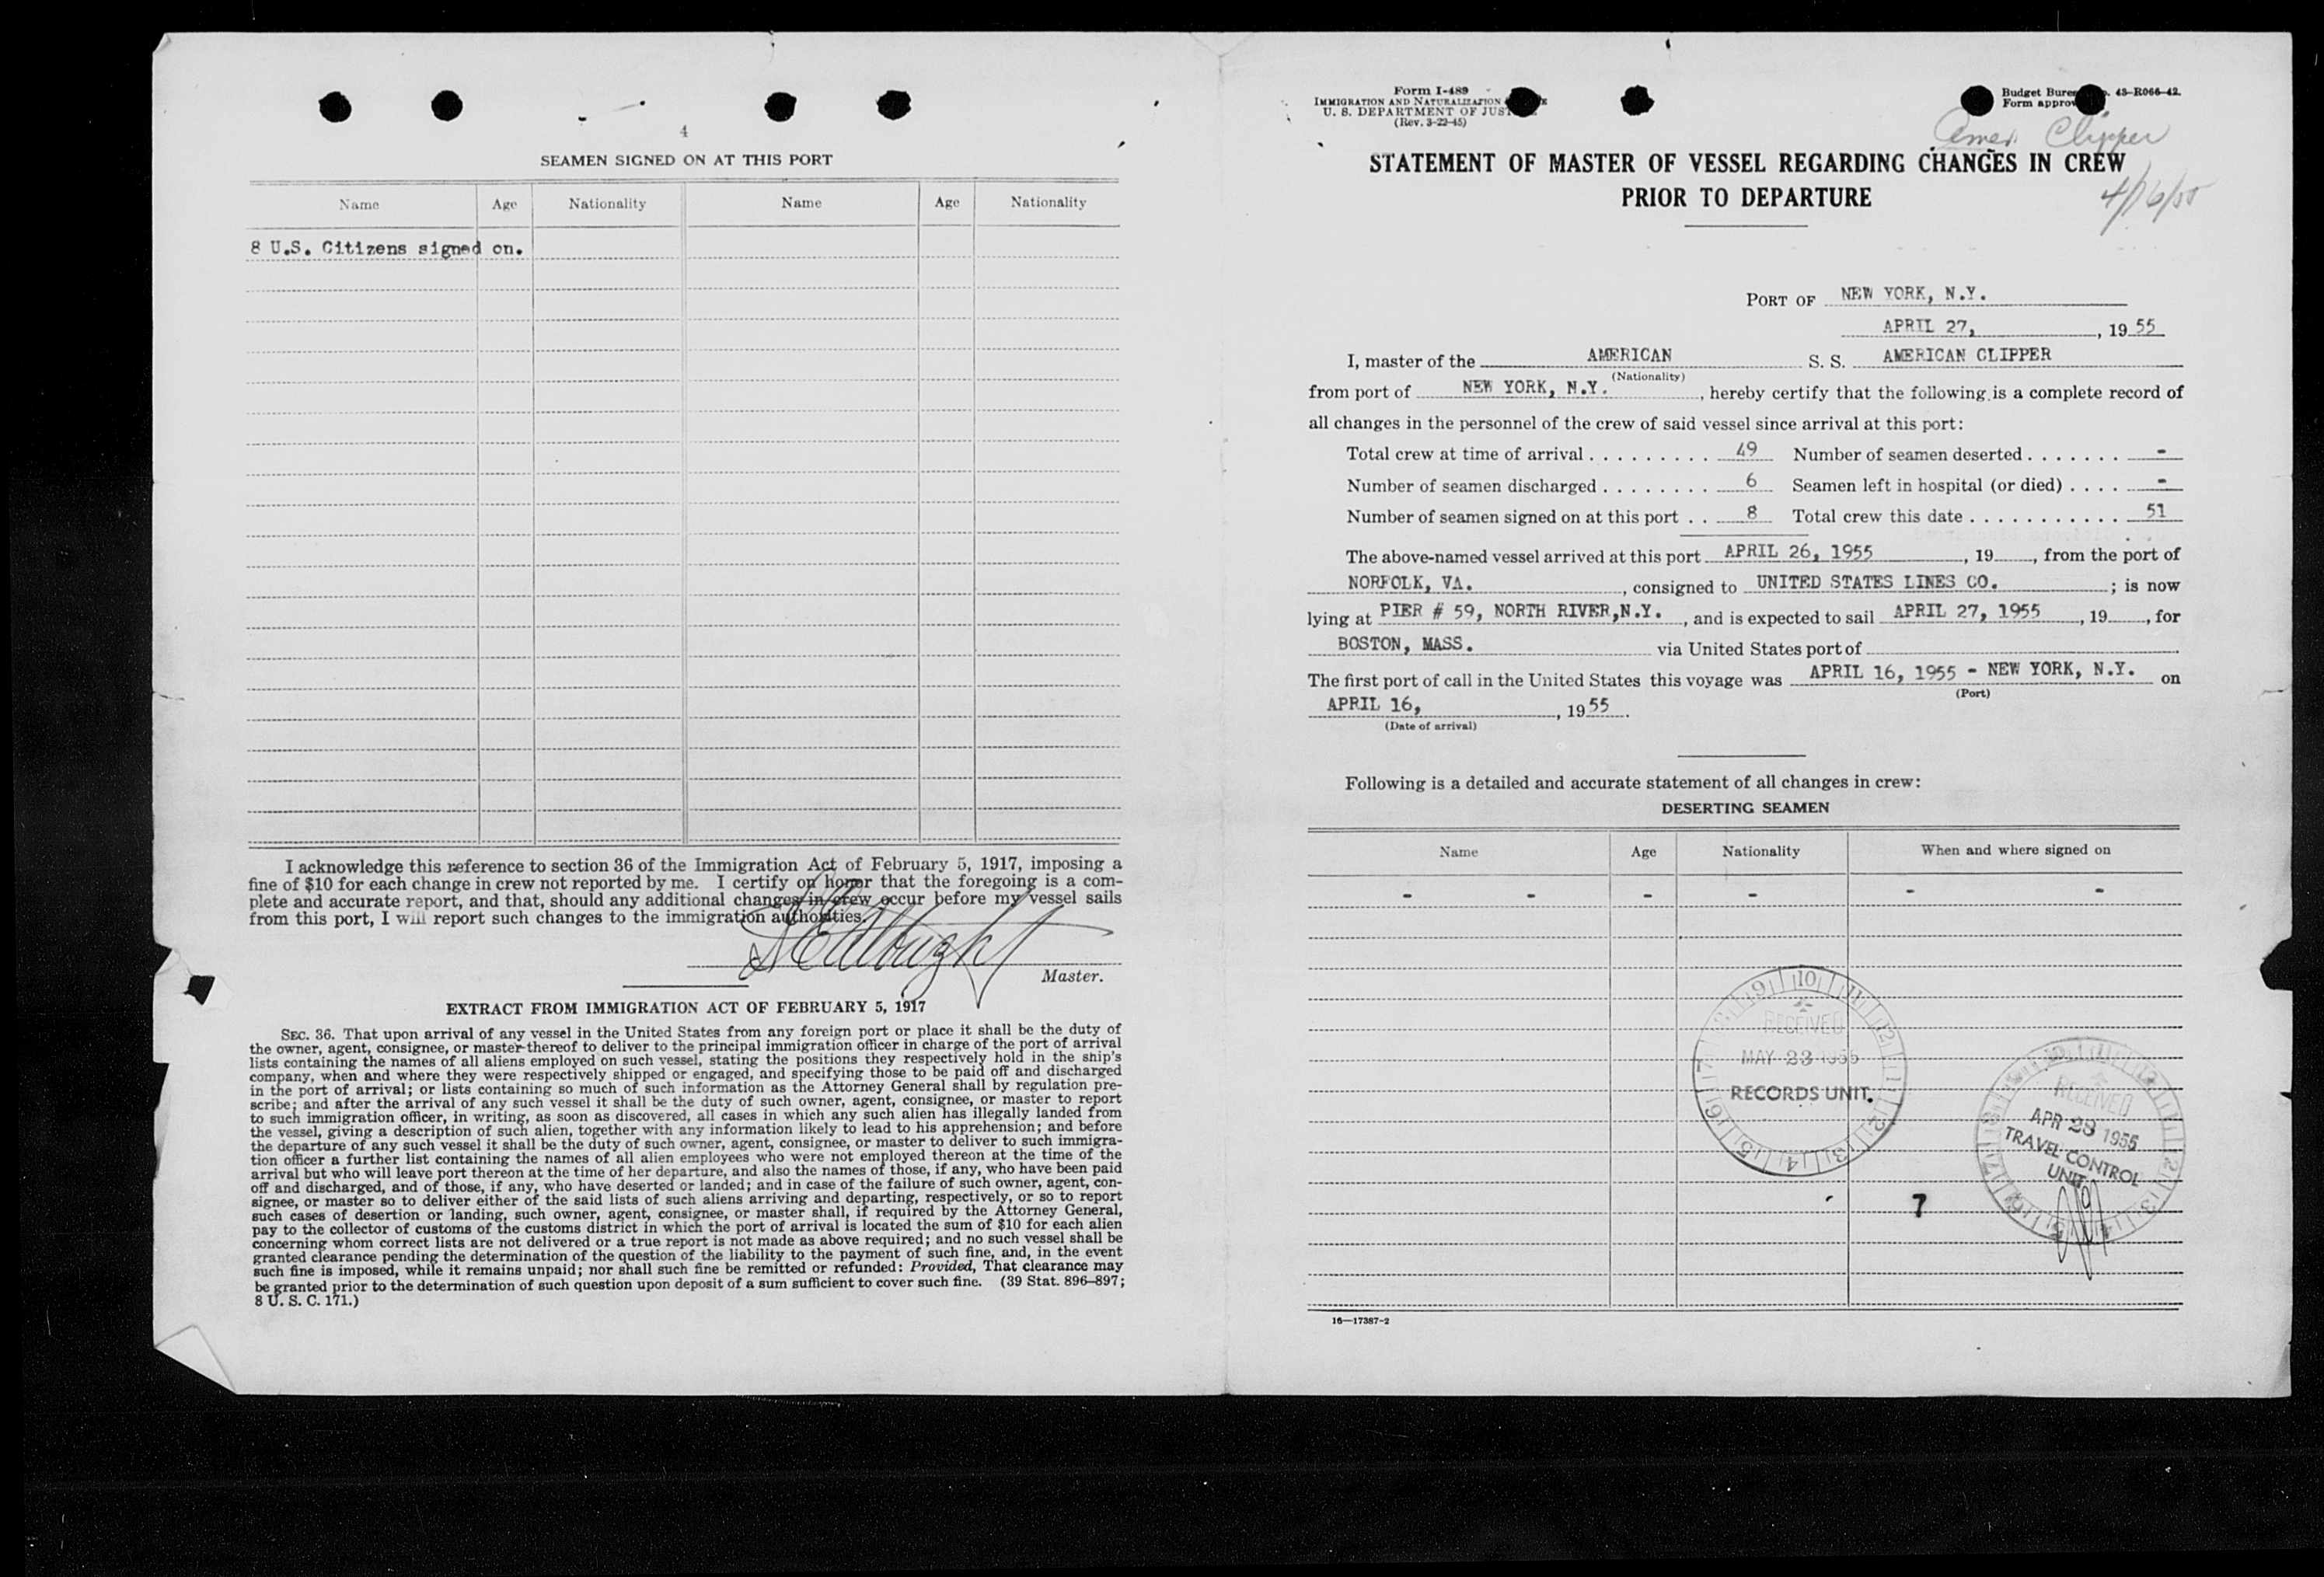 4
SEAMEN SIGNED ON AT THIS PORT
Name Age Nationality Name Age Nationality
8 U.S. Citizens signed on.
I acknowledge this reference to section 36 of the Immigration Act of February 5, 1917, imposing a
fine of $10 for each change in crew not reported by me. I certify on honor that the foregoing is a com-
plete and accurate report, and that, should any additional changes in crew occur before my vessel sails
from this port, I will report such changes to the immigration authorities.
Master.
EXTRACT FROM IMMIGRATION ACT OF FEBRUARY 5, 1917
SEC. 36. That upon arrival of any vessel in the United States from any foreign port or place it shall be the duty of
the owner, agent, consignee, or master thereof to deliver to the principal immigration officer in charge of the port of arrival
lists containing the names of all aliens employed on such vessel, stating the positions they respectively hold in the ship's
company, when and where they were respectively shipped or engaged, and specifying those to be paid off and discharged
in the port of arrival; or lists containing so much of such information as the Attorney General shall by regulation pre-
scribe; and after the arrival of any such vessel it shall be the duty of such owner, agent, consignee, or master to report
to such immigration officer, in writing, as soon as discovered, all cases in which any such alien has illegally landed from
the vessel, giving a description of such alien, together with any information likely to lead to his apprehension; and before
the departure of any such vessel it shall be the duty of such owner, agent, consignee, or master to deliver to such immigra-
tion officer a further list containing the names of all alien employees who were not employed thereon at the time of the
arrival but who will leave port thereon at the time of her departure, and also the names of those, if any, who have been paid
off and discharged, and of those, if any, who have deserted or landed; and in case of the failure of such owner, agent, con-
signee, or master so to deliver either of the said lists of such aliens arriving and departing, respectively, or so to report
such cases of desertion or landing, such owner, agent, consignee, or master shall, if required by the Attorney General,
pay to the collector of customs of the customs district in which the port of arrival is located the sum of $10 for each alien
concerning whom correct lists are not delivered or a true report is not made as above required; and no such vessel shall be
granted clearance pending the determination of the question of the liability to the payment of such fine, and, in the event
such fine is imposed, while it remains unpaid; nor shall such fine be remitted or refunded: Provided, That clearance may
be granted prior to the determination of such question upon deposit of a sum sufficient to cover such fine. (39 Stat. 896–897;
8 U. S. C. 171.)
Form I-489
IMMIGRATION AND NATURALIZATION
U. S. DEPARTMENT OF JUST
(Rev. 3-22-45)
Budget Bureau No. 43-R066-42.
Form approved
Amer. Clipper
STATEMENT OF MASTER OF VESSEL REGARDING CHANGES IN CREW
PRIOR TO DEPARTURE
4/16/55
PORT OF NEW YORK, N.Y.
APRIL 27, , 19 55
I, master of the AMERICAN S. S. AMERICAN CLIPPER
(Nationality)
from port of NEW YORK, N.Y. , hereby certify that the following is a complete record of
all changes in the personnel of the crew of said vessel since arrival at this port:
Total crew at time of arrival . . . . . . . . . 49 Number of seamen deserted . . . . . . . -
Number of seamen discharged . . . . . . . . 6 Seamen left in hospital (or died) . . . . -
Number of seamen signed on at this port . . 8 Total crew this date . . . . . . . . . . . . 51
The above-named vessel arrived at this port APRIL 26, 1955 , 19 , from the port of
NORFOLK, VA. , consigned to UNITED STATES LINES CO. ; is now
lying at PIER # 59, NORTH RIVER,N.Y. , and is expected to sail APRIL 27, 1955 , 19 , for
BOSTON, MASS. via United States port of
The first port of call in the United States this voyage was APRIL 16, 1955 - NEW YORK, N.Y. on
(Port)
APRIL 16, , 19 55 .
(Date of arrival)
Following is a detailed and accurate statement of all changes in crew:
DESERTING SEAMEN
Name Age Nationality When and where signed on
- - - - - -
RECEIVED
MAY 23 1955
RECORDS UNIT.
RECEIVED
APR 28 1955
TRAVEL CONTROL
UNIT
7
16—17387-2